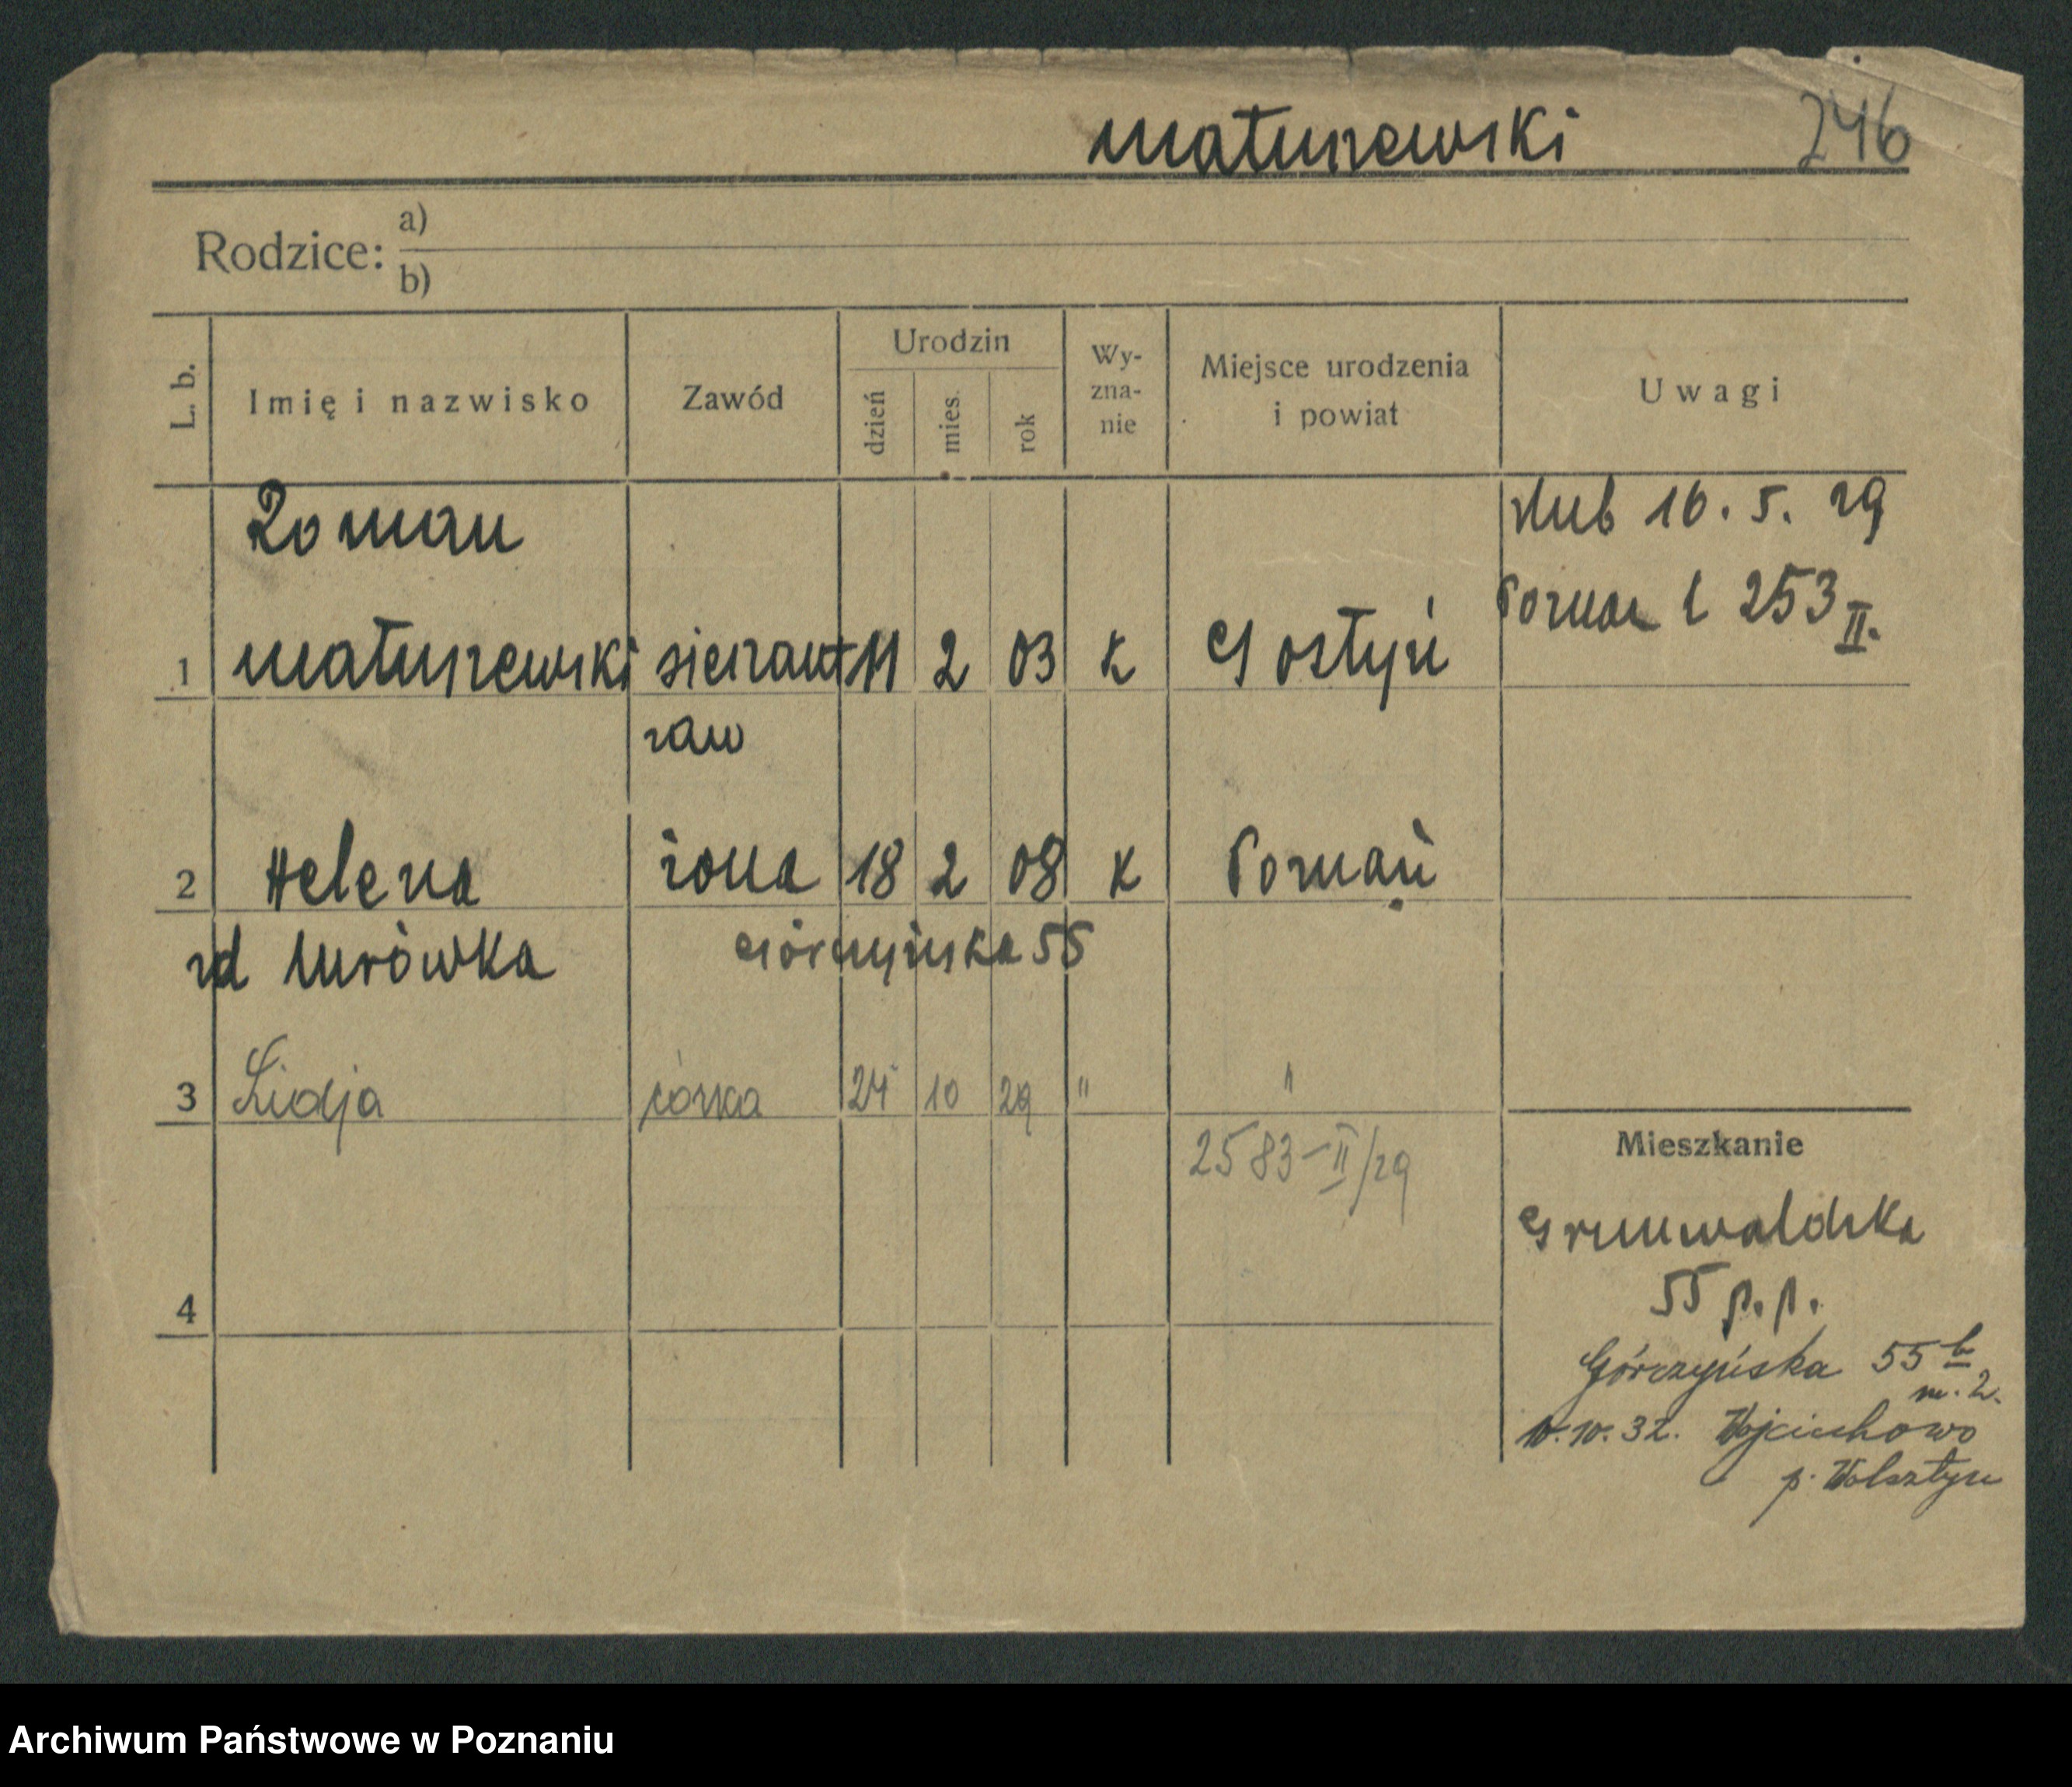 Matuszewski 246
Rodzice: a)
b)
L. b. Imię i nazwisko Zawód Urodzin dzień mies. rok Wy-zna-nie Miejsce urodzenia i powiat Uwagi
Roman ślub 16. 5. 29
Poznań l 253 II.
1 Matuszewski sierżant 11 2 03 k Gostyń
zaw
2 Helena żona 18 2 08 k Poznań
zd Mrówka Górczyńska 55
3 Lidja córka 24 10 29 " "
2583-II/29
Mieszkanie
Grunwaldzka
55 p. p.
4
Górczyńska 55 b
m. 2.
10.10.32. Wojciechowo
p. Wolsztyn
Archiwum Państwowe w Poznaniu